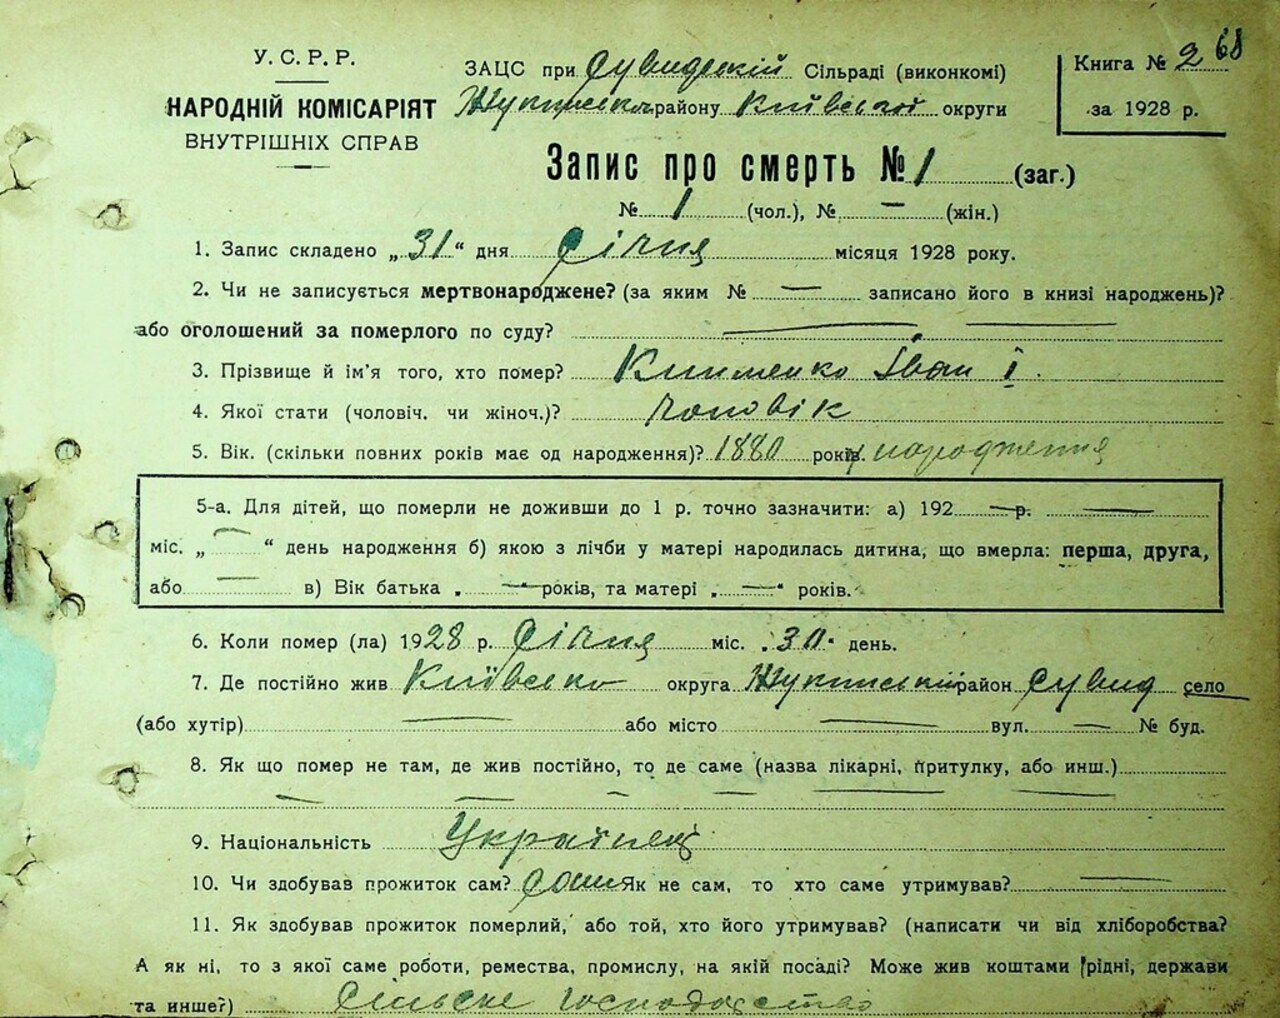 68
У. С. Р. Р.
НАРОДНІЙ КОМІСАРІЯТ
ВНУТРІШНІХ СПРАВ
ЗАЦС при Сувидській Сільраді (виконкомі)
Жукинського району Київської округи
Книга № 2
за 1928 р.
Запис про смерть № 1 (заг.)
№ 1 (чол.), № — (жін.)
1. Запис складено „31“ дня Січня місяця 1928 року.
2. Чи не записується мертвонароджене? (за яким № — записано його в книзі народжень)?
або оголошений за померлого по суду? — —
3. Прізвище й ім'я того, хто помер? Клименко Іван І.
4. Якої стати (чоловіч. чи жіноч.)? чоловік
5. Вік. (скільки повних років має од народження)? 1880 років. народження
5-а. Для дітей, що померли не доживши до 1 р. точно зазначити: а) 192 — р. —
міс. „ — “ день народження б) якою з лічби у матері народилась дитина, що вмерла: перша, друга,
або — в) Вік батька „ — “ років, та матері „ — “ років.
6. Коли помер (ла) 1928 р. Січня міс. „30“ день.
7. Де постійно жив Київсько округа Жукинський район Сувид село
(або хутір) — або місто — вул. — № буд.
8. Як що помер не там, де жив постійно, то де саме (назва лікарні, притулку, або инш.)
— — — — — —
9. Національність Українець
10. Чи здобував прожиток сам? Сам Як не сам, то хто саме утримував? —
11. Як здобував прожиток померлий, або той, хто його утримував? (написати чи від хліборобства?
А як ні, то з якої саме роботи, ремества, промислу, на якій посаді? Може жив коштами рідні, держави
та инше?) Сільске господарство